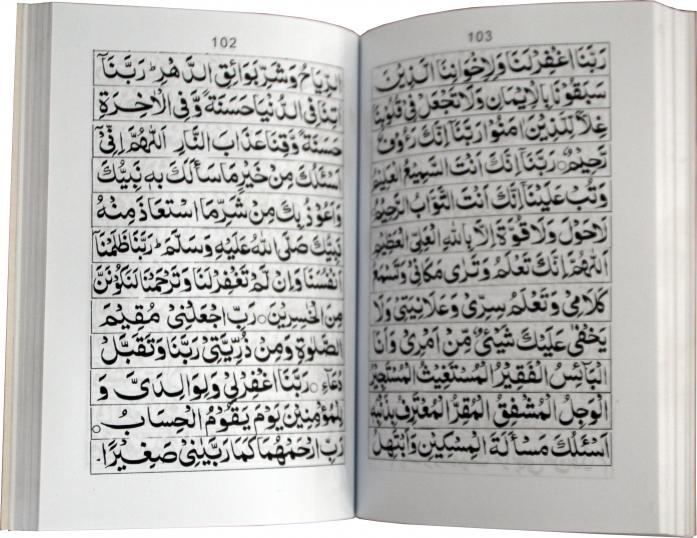 102
الرِّيَاحُ وَشَرِّ بَوَائِقِ الدَّهْرِ ط رَبَّنَآ
اٰتِنَا فِی الدُّنْيَا حَسَنَةً وَّفِی الْاٰخِرَةِ
حَسَنَةً وَّقِنَا عَذَابَ النَّارِ اَللّٰهُمَّ اِنِّیْٓ
اَسْئَلُكَ مِنْ خَيْرِ مَا سَأَلَكَ بِهٖ نَبِيُّكَ
وَاَعُوْذُ بِكَ مِنْ شَرِّ مَا اسْتَعَاذَ مِنْهُ
نَبِيُّكَ صَلَّی اللّٰهُ عَلَيْهِ وَسَلَّمَ ط رَبَّنَا ظَلَمْنَآ
اَنْفُسَنَا وَاِنْ لَّمْ تَغْفِرْ لَنَا وَتَرْحَمْنَا لَنَكُوْنَنَّ
مِنَ الْخٰسِرِيْنَ ○ رَبِّ اجْعَلْنِیْ مُقِيْمَ
الصَّلٰوةِ وَمِنْ ذُرِّيَّتِیْ رَبَّنَا وَتَقَبَّلْ
دُعَآءِ ○ رَبَّنَا اغْفِرْلِیْ وَلِوَالِدَیَّ وَ
لِلْمُؤْمِنِيْنَ يَوْمَ يَقُوْمُ الْحِسَابُ ○
رَبِّ ارْحَمْهُمَا كَمَا رَبَّيٰنِیْ صَغِيْرًا۔
103
رَبَّنَا اغْفِرْلَنَا وَلِاِخْوَانِنَا الَّذِيْنَ
سَبَقُوْنَا بِالْاِيْمَانِ وَلَا تَجْعَلْ فِیْ قُلُوْبِنَا
غِلًّا لِّلَّذِيْنَ اٰمَنُوْا رَبَّنَا اِنَّكَ رَءُوْفٌ
رَّحِيْمٌ ○ رَبَّنَا اِنَّكَ اَنْتَ السَّمِيْعُ الْعَلِيْمُ
وَتُبْ عَلَيْنَا اِنَّكَ اَنْتَ التَّوَّابُ الرَّحِيْمُ
لَاحَوْلَ وَلَا قُوَّةَ اِلَّا بِاللّٰهِ الْعَلِیِّ الْعَظِيْمِ
اَللّٰهُمَّ اِنَّكَ تَعْلَمُ وَتَرٰی مَكَانِیْ وَتَسْمَعُ
كَلَامِیْ وَتَعْلَمُ سِرِّیْ وَعَلَانِيَتِیْ وَلَا
يَخْفٰی عَلَيْكَ شَیْئٌ مِّنْ اَمْرِیْ وَاَنَا
الْبَآئِسُ الْفَقِيْرُ الْمُسْتَغِيْثُ الْمُسْتَجِيْرُ
الْوَجِلُ الْمُشْفِقُ الْمُقِرُّ الْمُعْتَرِفُ بِذَنْبِهٖ
اَسْئَلُكَ مَسْأَلَةَ الْمِسْكِيْنِ وَاَبْتَهِلُ